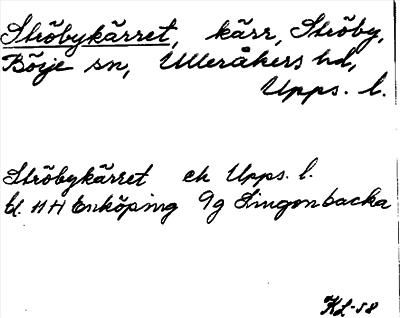 Ströbykärret, kärr, Ströby,
Börje sn, Ulleråkers hd,
Upps. l.
Ströbykärret ek Upps. l.
bl. 11H Enköping 9g Lingonbacka
KL-58